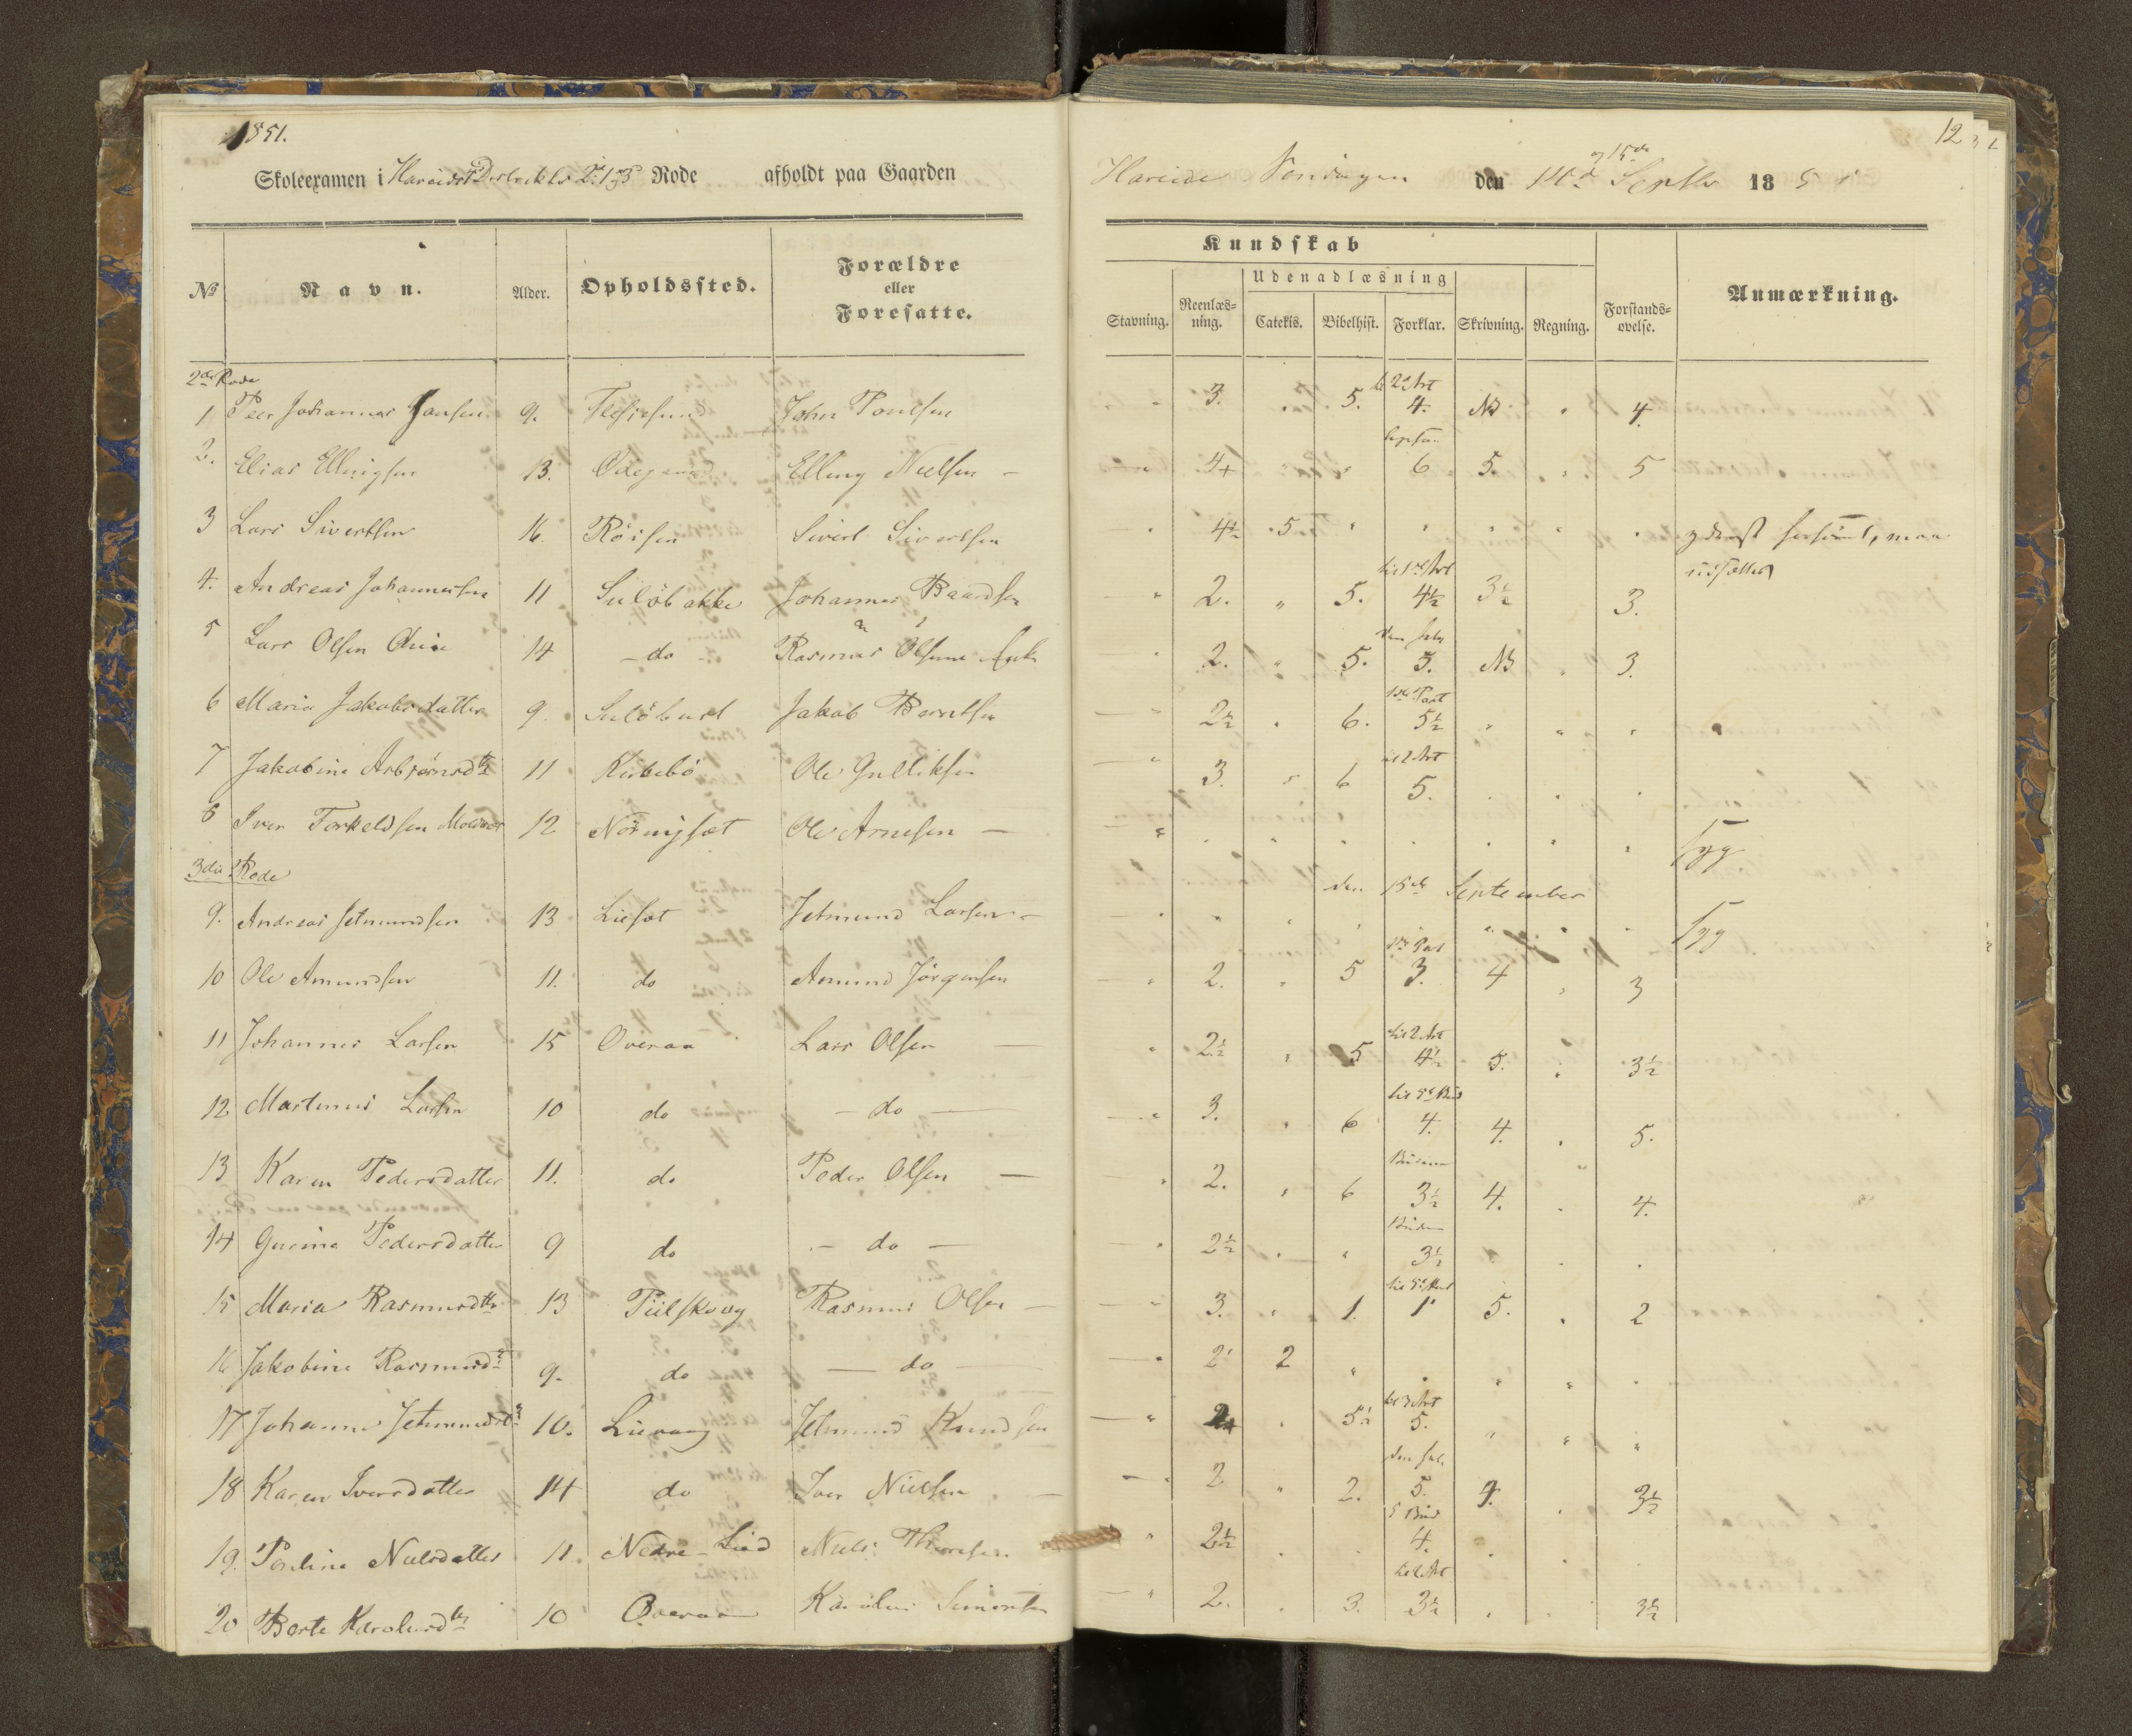 1851.
Skoleexamen i Hareids 2 & 3 Rode afholdt paa Gaarden
№ Navn. Alder. Opholdssted. Forældre eller Foresatte.
2den Rode
1 Peer Johannes Jansen 9. John Poulsen
2. Elias Ellingsen 13. Ødegaard Elling Nielsen –
3 Lars Sivertsen 16. Röisen Sivert Sivertsen
4. Andreas Johannessen 11 Sulöbakke Johannes Baardsen
5 Lars Olsen 14 – do – Rasmus Olsens Enke
6 Maria Jakobsdatter 9. Jakob Berntsen
7 Jakobine Asbjørnsdtr 11 Kirkebö Ole Gulliksen
8 Iver Torkeldsen 12 Nöringset Ole Arnesen –
3die Rode
9. Andreas Jetmundsen 13 Lieset Jetmund Larsen –
10 Ole Amundsen 11. do Amund Jörgensen
11 Johannes Larsen 15 Overaa Lars Olsen –
12 Martinus Larsen 10 do – do –
13 Karen Pedersdatter 11. do Peder Olsen –
14 Gurine Pedersdatter 9 do – do –
15 Maria Rasmusdtr 13 Piilskoug Rasmus Olsen –
16 Jakobine Rasmusdtr 9. do – do –
17 Johanne Jetmundsdtr 10. Lievaag Jetmund Knudsen
18 Karen Iversdatter 14 do Iver Nielsen –
19. Pouline Nielsdatter 11 Nedre-Lied Niels Thoresen
20 Berte Karolusdtr 10 Overaa Karolus Simonsen
12
Hareide Søndagen den 14de og 15de Septbr 1851
Kundskab
Udenadlæsning
Stavning. Reenlæsning. Catekis. Bibelhist. Forklar. Skrivning. Regning. Forstandsøvelse. Anmærkning.
til 2 Art
3. 5. 4. NB 4.
4+ 6 5. 5
4½ 5 forsömt, maa
udsættes
til 1ste Art
2. 5. 4½ 3½ 3.
den hele
2. 5. 5. NB 3.
1ste Part
2½ 6. 5½
til 2 Art
3. 6 5.
Syg
den 15de September
Syg
1ste Part
2. 5 3. 4 3
til 2 Art
2½ 5 4½ 5. 3½
til 5te Bud
3. 6 4. 4. 5.
Budene
2. 6 3½ 4. 4.
Budene
2½ 3½
til 5te Bud
3. 1. 1 5. 2
2 2
til 3 Art
2+ 5½ 5.
den hele
2 2. 5. 4. 3½
5 Bud
2½ 4.
til 2 Art
2. 3. 3½ 3½